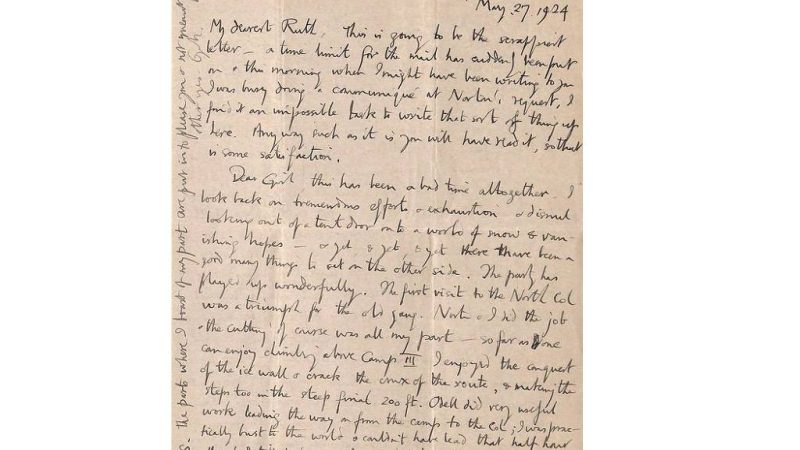 May. 27 1924
My dearest Ruth, This is going to be the scrappiest
letter — a time limit for the mail has suddenly been put
on & this morning when I might have been writing to you
I was busy doing a communiqué at Norton's request, I
find it an impossible task to write that sort of thing up
here. Anyway such as it is you will have read it, so that
is some satisfaction.
Dear Girl this has been a bad time altogether. I
look back on tremendous efforts & exhaustion & dismal
looking out of a tent door onto a world of snow & van-
ishing hopes — & yet, & yet, & yet there have been a
good many things to set on the other side. The party has
played up wonderfully. The first visit to the North Col
was a triumph for the old gang. Norton & I did the job
& the cutting of course was all my part — so far as one
can enjoy climbing above Camp III I enjoyed the conquest
of the ice wall & crack the crux of the route, & making the
steps too in the steep final 200 ft. Odell did very useful
work leading the way on from the camp to the Col; I was prac-
tically bust to the world & couldn't have lead that half hour
P.S. The parts where I boast of my part are put in to please you & not meant
for other eyes. G.M.